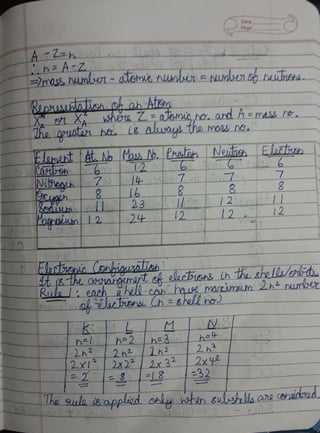 Date
Page
A - Z = n
∴ n = A - Z
⇒ mass number - atomic number = number of neutrons.
Representation of an Atom
where Z = atomic no. and A = mass no.
The greater no. is always the mass no.
Element At. No Mass No. Proton Neutron Electron
Carbon 6 12 6 6 6
Nitrogen 7 14 7 7 7
Oxygen 8 16 8 8 8
Sodium 11 23 11 12 11
Magnesium 12 24 12 12 12
Electronic Configuration
It is the arrangement of electrons in the shells/orbits
Rule 1 : each shell can have maximum 2n² number
of electrons (n = shell no)
K L M N
n=1 n=2 n=3 n=4
2n² 2n² 2n² 2n²
2x1² 2x2² 2x3² 2x4²
=2 =8 =18 =32
The rule is applied only when subshells are considered